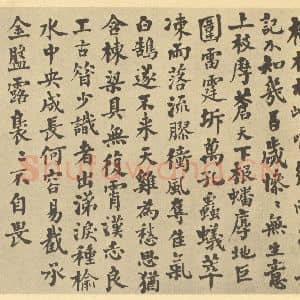 記不知幾百歲慘〻無生意
上枝摩蒼天下根蟠厚地巨
圍雷霆坼萬孔蟲蟻萃
凍雨落流膠衝風奪佳氣
白鵠遂不来天雞為愁思猶
含棟梁具無復霄漢志良
工古昔少識者出涕淚種榆
水中央成長何容易截承
金盤露裊〻不自畏